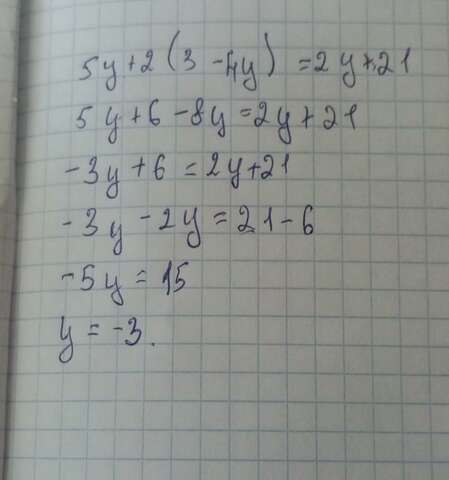 5y+2(3-4y)=2y+21
5y+6-8y=2y+21
-3y+6=2y+21
-3y-2y=21-6
-5y=15
y=-3.